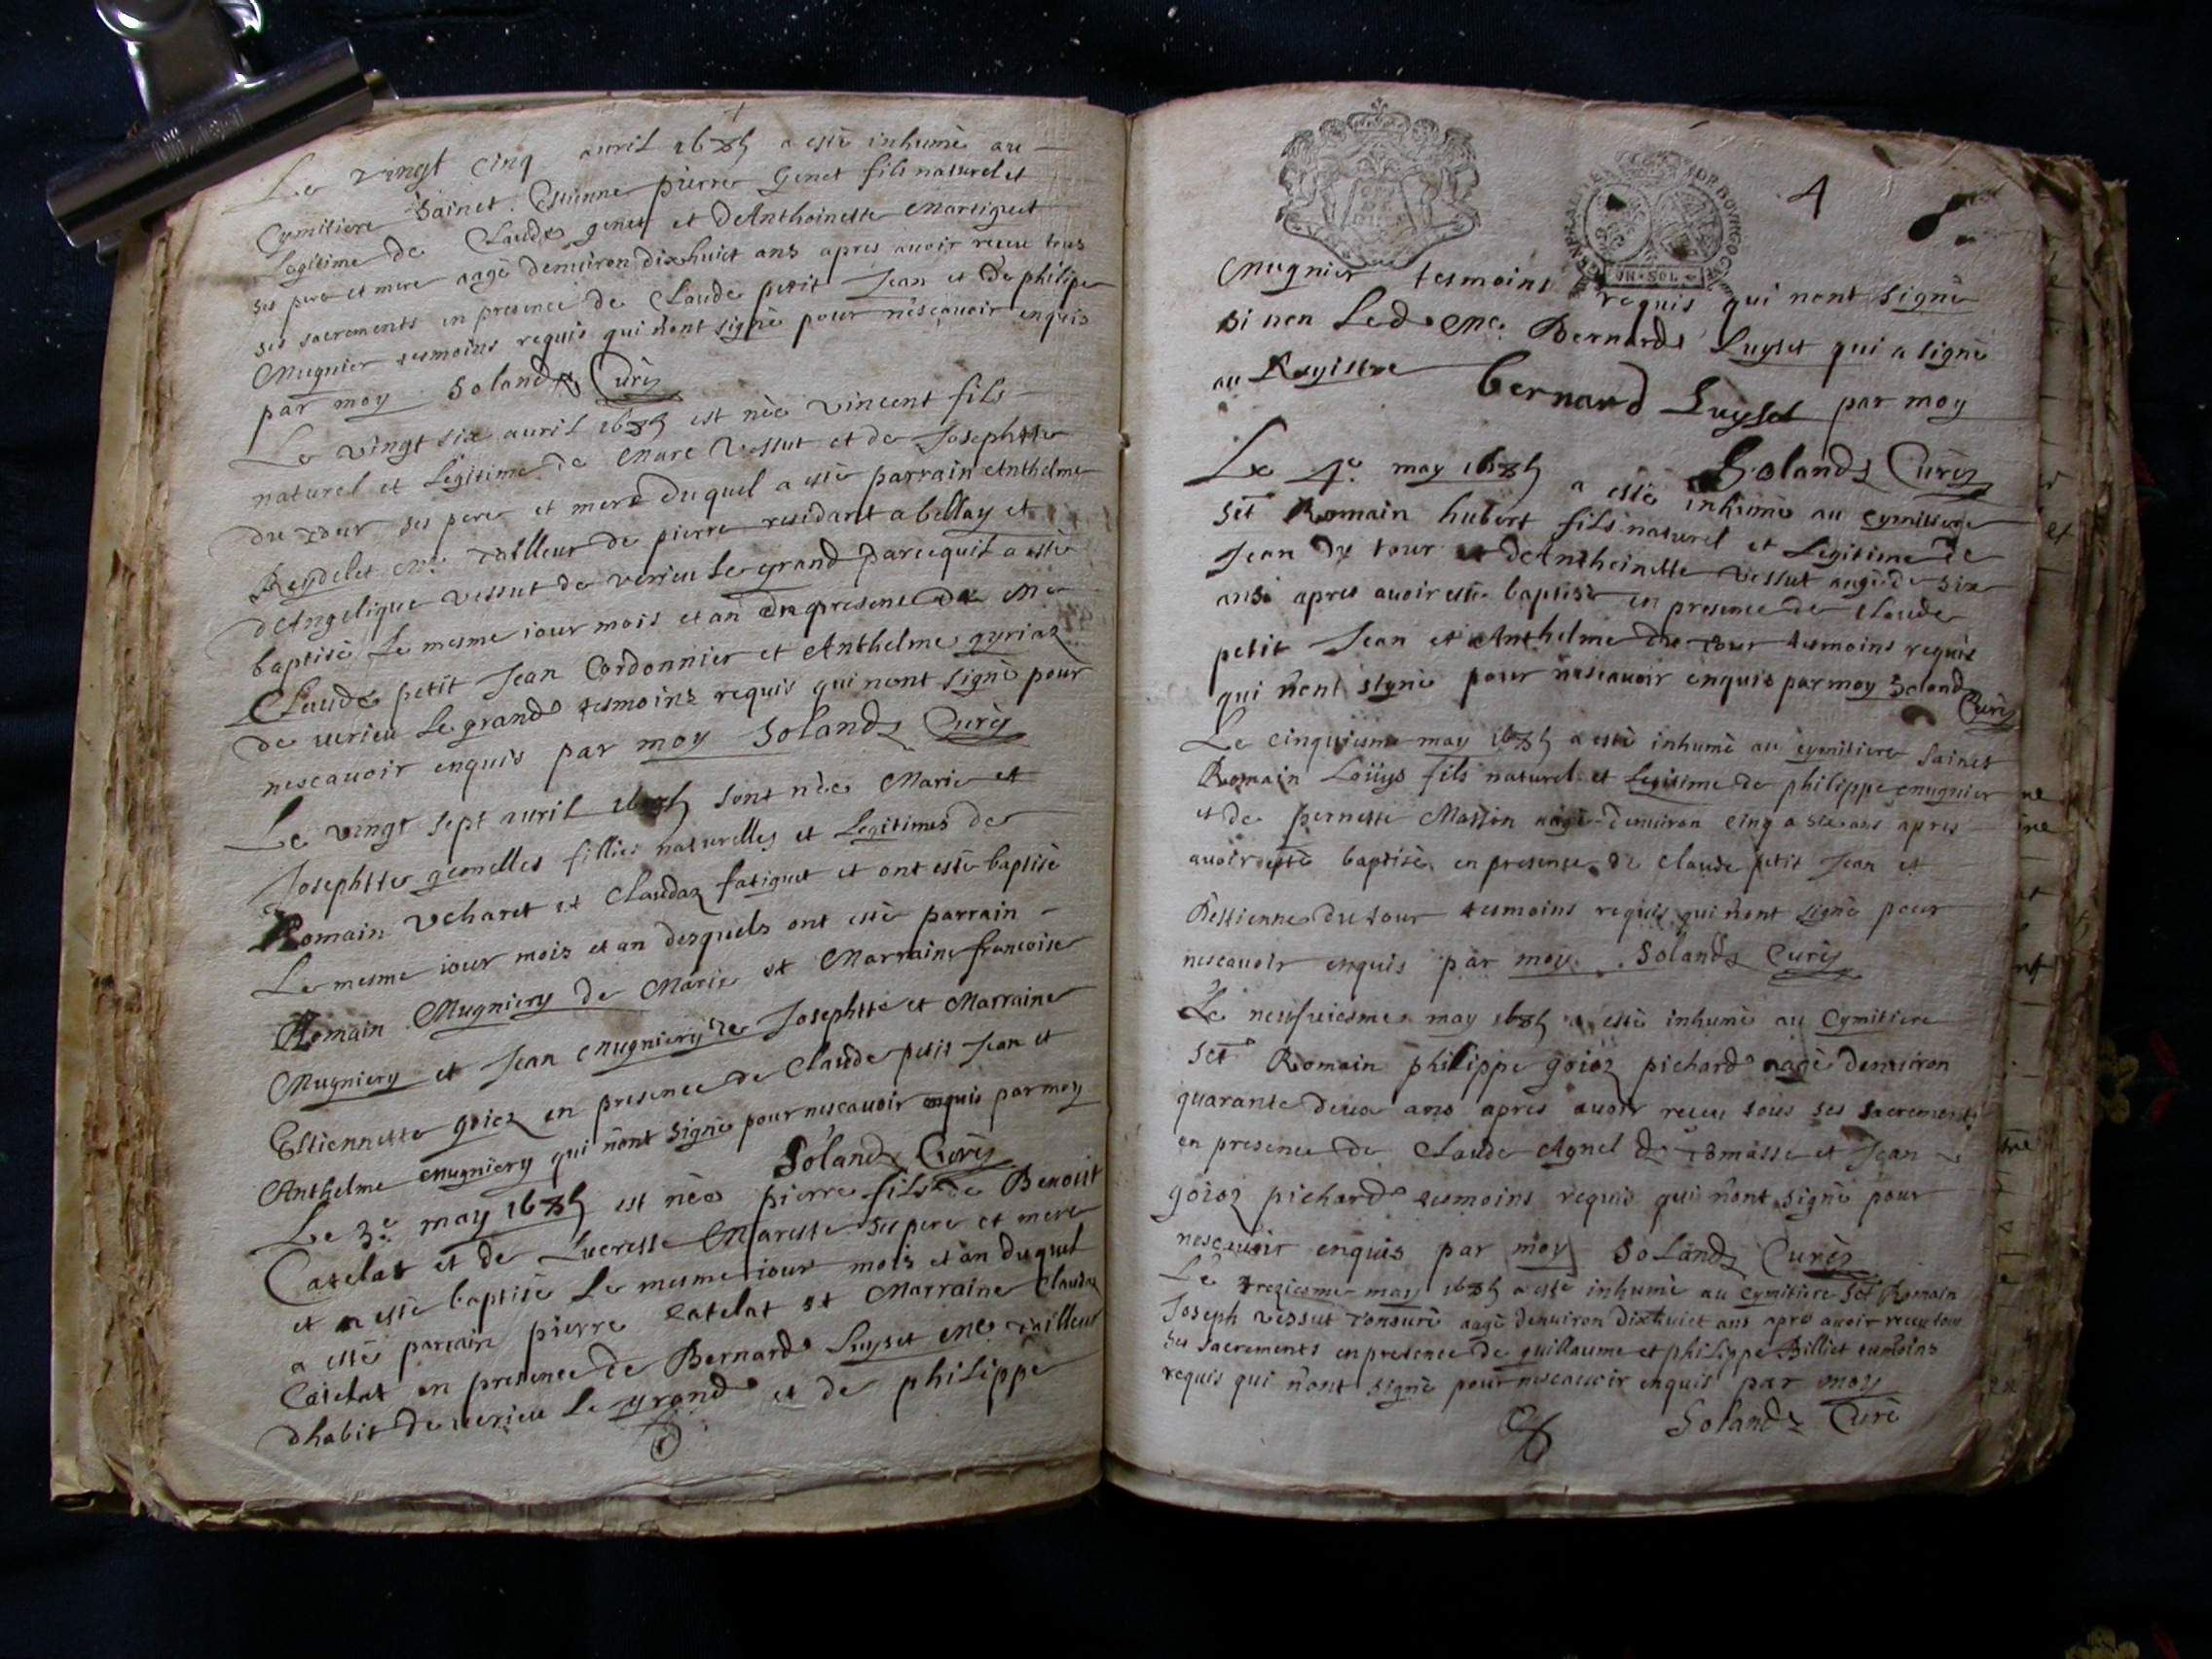 Le vingt cinq avril 1685 a esté inhumé au
Cymitiere Sainct Estienne pierre Genet fils naturel et
Legitime de Claude genet et deAnthoinette Martiguet
ses pere et mere aagé denuiron dixhuict ans apres auoir receu tous
ses sacrements en presence de Claude petit Jean et de philipe
Mugnier tesmoins requis qui n'ont signé pour nescauoir enquis
par moy Solandz Curé
Le vingt six auril 1685 est née vincent fils
naturel et Legitime de Marc Vessut et de Josephtte
du tour ses pere et mere duquel a esté parrain Anthelme
Reydelet me tailleur de pierre residant a bellay et
dAngelique vessut de verieu le grand parcequil a esté
baptisé Le mesme iour mois et an en presence de Me
Claude petit Jean Cordonnier et Anthelme gyriaz
de uerieu Le grand tesmoins requis qui nont signé pour
nescauoir enquis par moy Solandz Curé
Le vingt sept auril 1685 sont née Marie et
Josephtte gemelles fillies naturelles et Legitimes de
Romain Veharet et Claudaz fatiguet et ont esté baptisé
Le mesme iour mois et an desquels ont esté parrain
Romain Mugniery de Marie et Marraine francoise
Mugniery et Jean Mugniery de Josephtte et Marraine
Estiennette goiez en presence de Claude petit Jean et
Anthelme Mugniery qui nont signé pour nescauoir enquis par moy
Solandz Curé
Le 3e may 1685 est née pierre fils de Benoist
Catelat et de Lucresse Mareste ses pere et mere
et a esté baptisé Le mesme iour mois et an duquel
a esté parrain pierre Catelat et Marraine Claudaz
Catelat en presence de Bernard Luyset me tailleur
dhabit de uerieu Le grand et de philippe
GENERALITE DE BOVRGOGNE
VN SOL
4
Mugnier tesmoins requis qui nont signé
si non Led. me Bernard Luyset qui a signé
au Registre
bernard Luyset par moy
Solandz Curé
Le 4e may 1685 a esté inhumé au cymitiere
Sct Romain hubert fils naturel et Legitime de
Jean du tour et deAnthoinette vessut aagé de six
ans apres auoir esté baptisé en presence de Claude
petit Jean et Anthelme du tour tesmoins requis
qui nont signé pour nescauoir enquis par moy Solandz
Curé
Le cinquiesme may 1685 a esté inhumé au cymitiere Sainct
Romain Loüys fils naturel et Legitime de philippe mugnier
et de pernette Masson aagé denuiron cinq a six ans apres
auoir esté baptisé en presence de Claude petit Jean et
destienne du tour tesmoins requis qui nont signé pour
nescauoir enquis par moy Solandz Curé
Le neufuiesme may 1685 a esté inhumé au Cymitiere
Sct Romain philippe goioz pichard aagé denuiron
quarante deux ans apres auoir receu tous ses sacrements
en presence de Claude Agnel de tomasse et Jean
goioz pichard tesmoins requis qui nont signé pour
nescauoir enquis par moy Solandz Curé
Le treziesme may 1685 a esté inhumé au Cymitiere Sct Romain
Joseph vessut tonsuré aagé denuiron dixhuict ans apres auoir receu tous
ses sacrements en presence de guillaume et philippe Billiet tesmoins
requis qui nont signé pour nescauoir enquis par moy
Solandz Curé